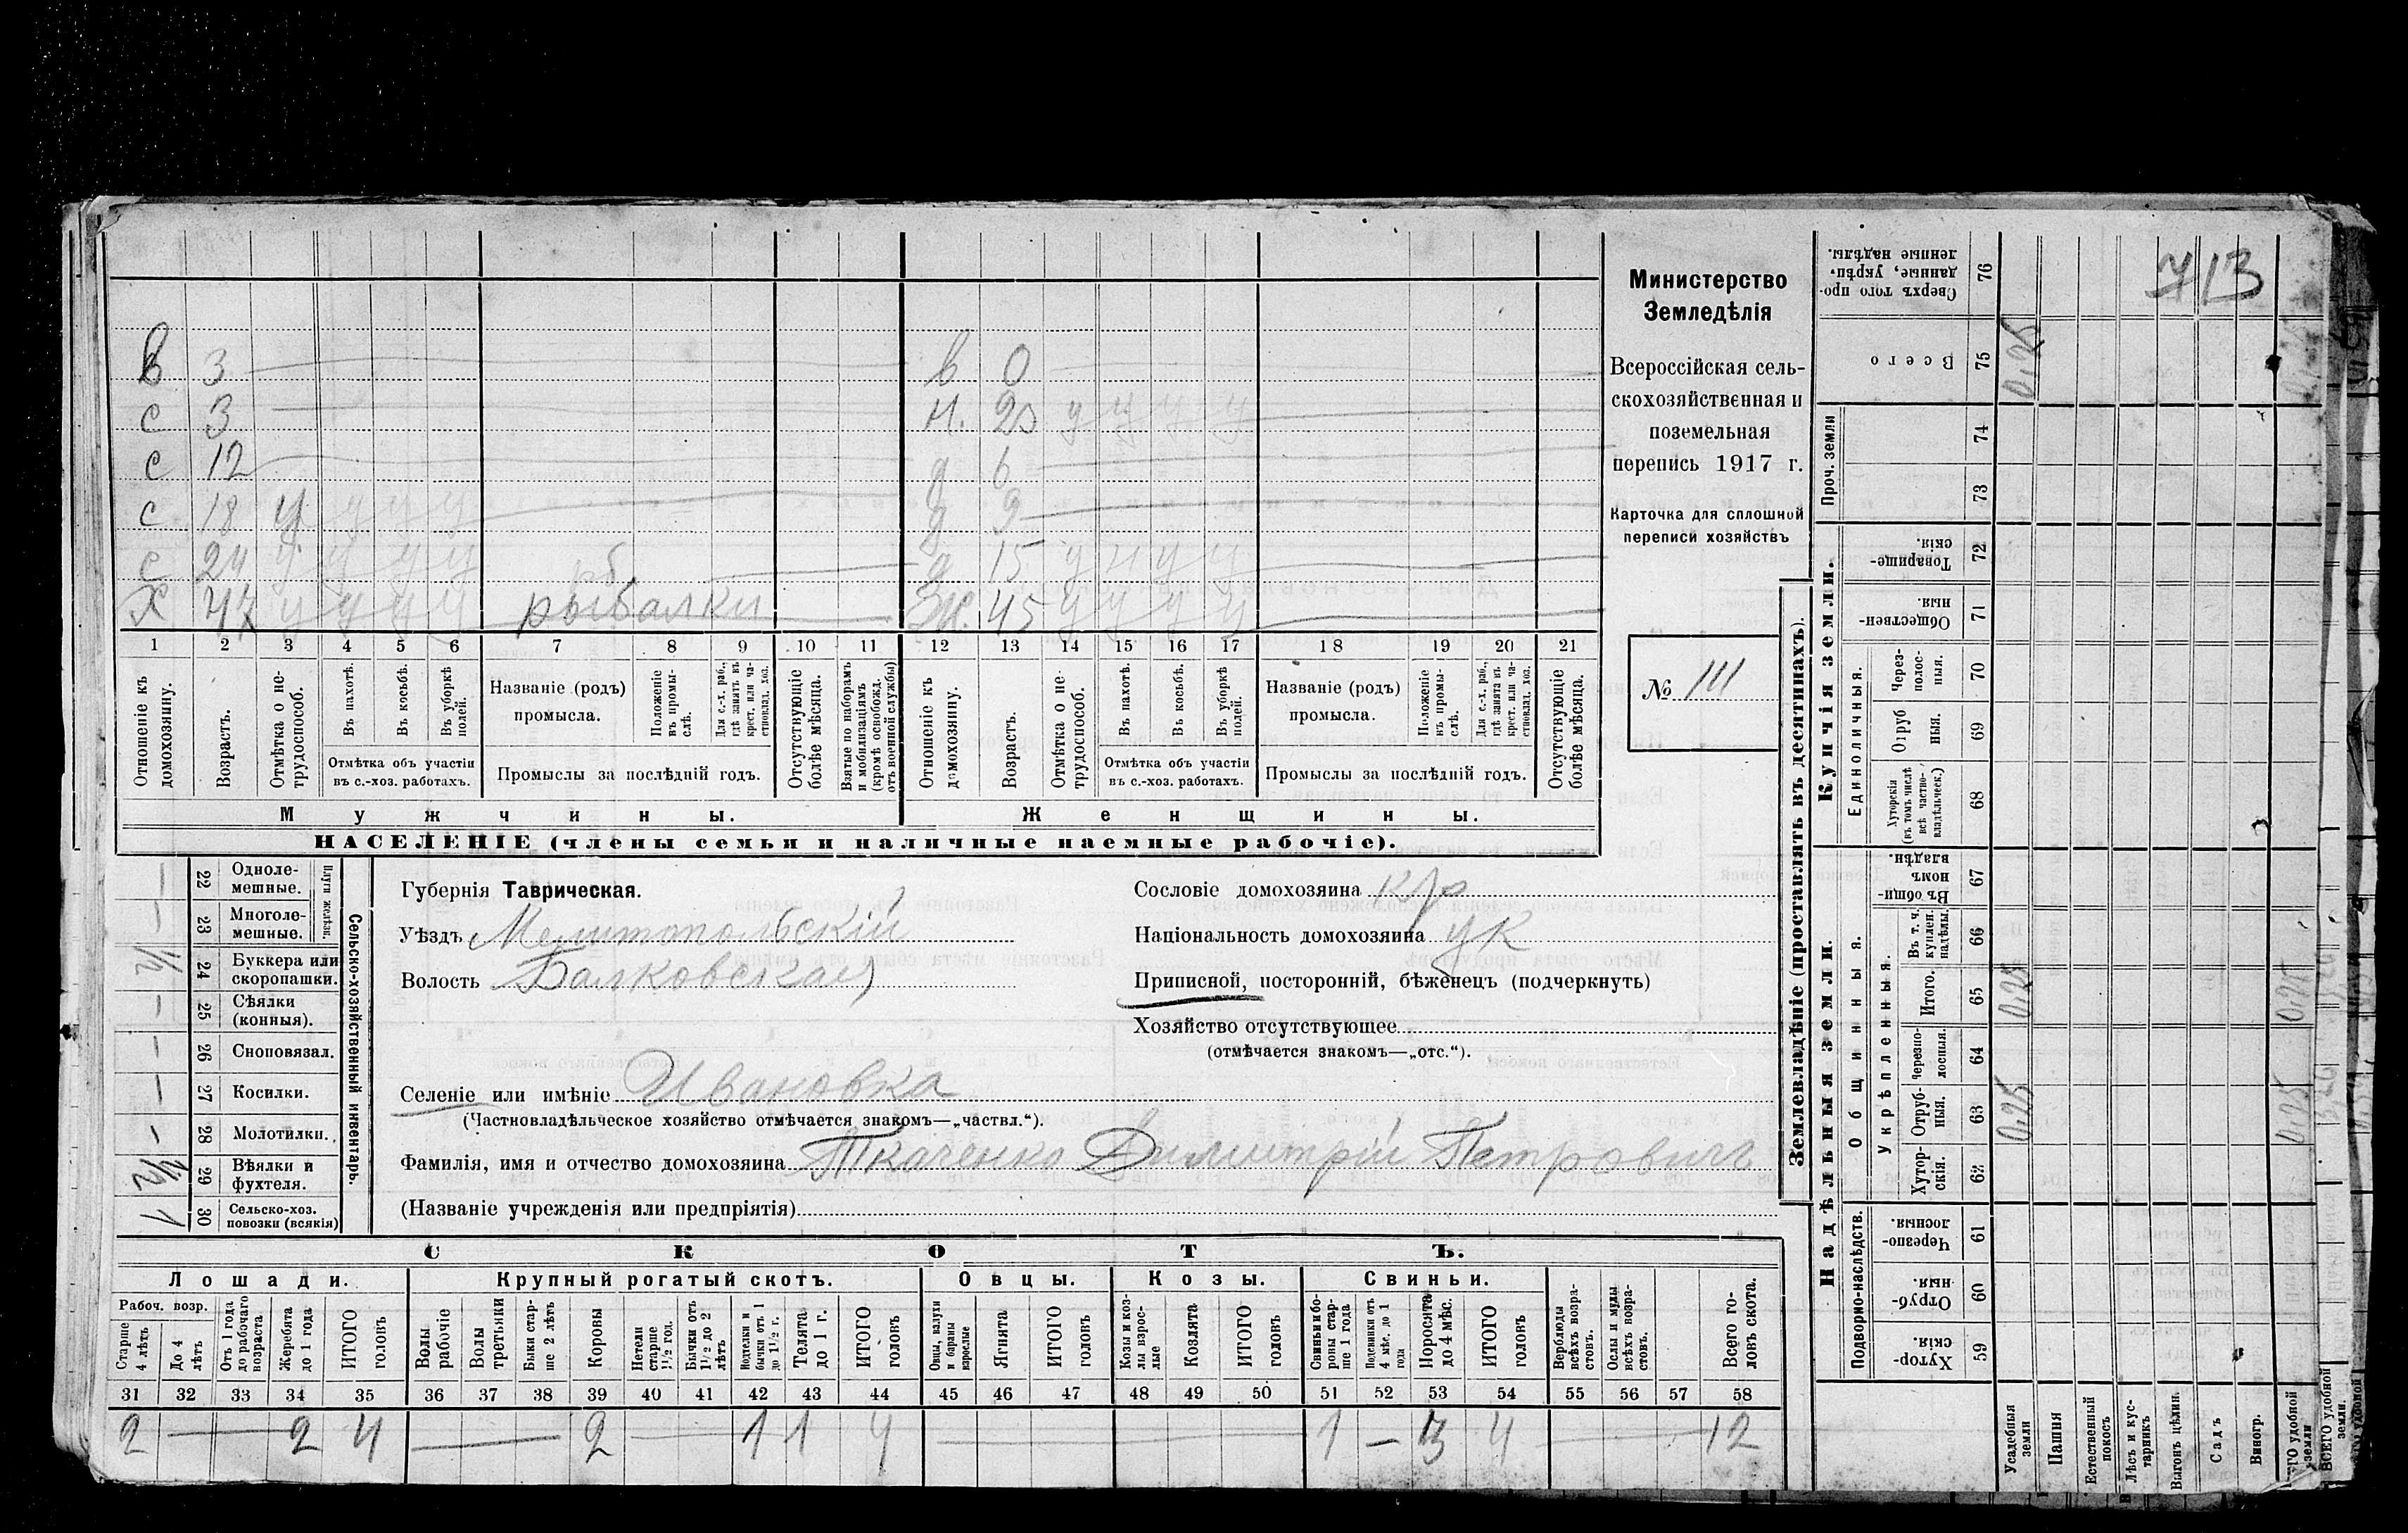 713
Министерство
Земледѣлія
Всероссійская сель-
скохозяйственная и
поземельная
перепись 1917 г.
Карточка для сплошной
переписи хозяйствъ
№ 111
в 3 — в 0 —
с 3 — н. 20 у у у у —
с 12 — д 6 —
с 18 у у у у — д 9 —
с 24 у у у у — д 15 у н у у —
х 47 у у у у рыбалки — Ж. 45 у у у у —
1 2 3 4 5 6 7 8 9 10 11 12 13 14 15 16 17 18 19 20 21
Отношеніе къ домохозяину.
Возрастъ.
Отмѣтка о не-
трудоспособ.
Въ пахотѣ.
Въ косьбѣ.
Въ уборкѣ полей.
Отмѣтка объ участіи
въ с.-хоз. работахъ.
Названіе (родъ)
промысла.
Положеніе въ промы-
слѣ.
Для с.-х. раб.,
гдѣ занятъ въ
крест. или ча-
стновлад. хоз.
Промыслы за послѣдній годъ.
Отсутствующіе
болѣе мѣсяца.
Взятые по наборамъ
и мобилизаціямъ
(кромѣ освобожд.
отъ военной службы)
Отношеніе къ
домохозяину.
Возрастъ.
Отмѣтка о не-
трудоспособ.
Въ пахотѣ.
Въ косьбѣ.
Въ уборкѣ
полей.
Отмѣтка объ участіи
въ с.-хоз. работахъ.
Названіе (родъ)
промысла.
Положеніе
въ промы-
слѣ.
Для с.-х. раб.,
гдѣ занята въ
крест. или ча-
стновлад. хоз.
Промыслы за послѣдній годъ.
Отсутствующіе
болѣе мѣсяца.
Мужчины. Женщины.
НАСЕЛЕНІЕ (члены семьи и наличные наемные рабочіе).
Сельско-хозяйственный инвентарь.
Плуги желѣзн.
— 22 Одноле-
мешные.
— 23 Многоле-
мешные.
1/2 24 Буккера или
скоропашки.
— 25 Сѣялки
(конныя).
— 26 Сноповязал.
— 27 Косилки.
— 28 Молотилки.
1/2 29 Вѣялки и
фухтеля.
1 30 Сельско-хоз.
повозки (всякія)
Губернія Таврическая.
Уѣздъ Мелитопольскій
Волость Балковская
Селеніе или имѣніе Ивановка
(Частновладѣльческое хозяйство отмѣчается знакомъ—„частвл.“).
Фамилія, имя и отчество домохозяина Ткаченко Димитрій Петровичъ
(Названіе учрежденія или предпріятія)
Сословіе домохозяина кр
Національность домохозяина ук
Приписной, посторонній, бѣженецъ (подчеркнуть)
Хозяйство отсутствующее
(отмѣчается знакомъ—„отс.“).
СКОТЪ.
Лошади. Крупный рогатый скотъ. Овцы. Козы. Свиньи.
Рабоч. возр.
Старше
4 лѣтъ
До 4
лѣтъ
Отъ 1 года
до рабочаго
возраста
Жеребята
до 1 года
ИТОГО
головъ
Волы
рабочіе
Волы
третьяки
Быки стар-
ше 2 лѣтъ
Коровы
Нетели
старше
1 1/2 год.
Бычки отъ
1 1/2 до 2
лѣтъ
Подтелки и
бычки отъ 1
до 1 1/2 г.
Телята
до 1 г.
ИТОГО
головъ
Овцы, валухи
и бараны
взрослые
Ягнята
ИТОГО
головъ
Козы и коз-
лы взрос-
лые
Козлята
ИТОГО
головъ
Свиньи и бо-
ровы стар-
ше 1 года
Подсвинки отъ
4 мѣс. до 1
года
Поросята
до 4 мѣс.
ИТОГО
головъ
Верблюды
всѣхъ возра-
стовъ.
Ослы и мулы
всѣхъ возра-
стовъ.
Всего го-
ловъ скота.
31 32 33 34 35 36 37 38 39 40 41 42 43 44 45 46 47 48 49 50 51 52 53 54 55 56 57 58
2 — 2 4 — 2 — 1 1 4 — 1 — 3 4 — 12
Землевладѣніе (проставлять въ десятинахъ).
Купчія земли.
Надѣльныя земли.
Проч. земли
Единоличныя.
Общинныя.
Укрѣпленныя.
Подворно-наслѣдств.
Сверхъ того про-
данные, укрѣп-
ленные надѣлы.
76
Всего
75 0,25
74
73
Товарище-
скія.
72
Обществен-
ныя.
71
Через-
полос-
ныя.
70
Отруб
ныя.
69
Хуторскія
(въ томъ числѣ
всѣ частно-
владѣльческ.)
68
Въ общин-
номъ
владѣн.
67
Въ т. ч.
куплен.
надѣлы.
66
Итого.
65 0,25
Черезпо-
лосныя.
64
Отруб-
ныя.
63 0,25
Хутор-
скія.
62
Черезпо-
лосныя.
61
Отруб-
ныя.
60
Хутор-
скія.
59
Усадебныя
земли
Пашня
Естественный
покосъ
Лѣсъ и кус-
тарникъ
Выгонъ цѣлин.
Садъ
Виногр.
ВСЕГО удобной
земли.